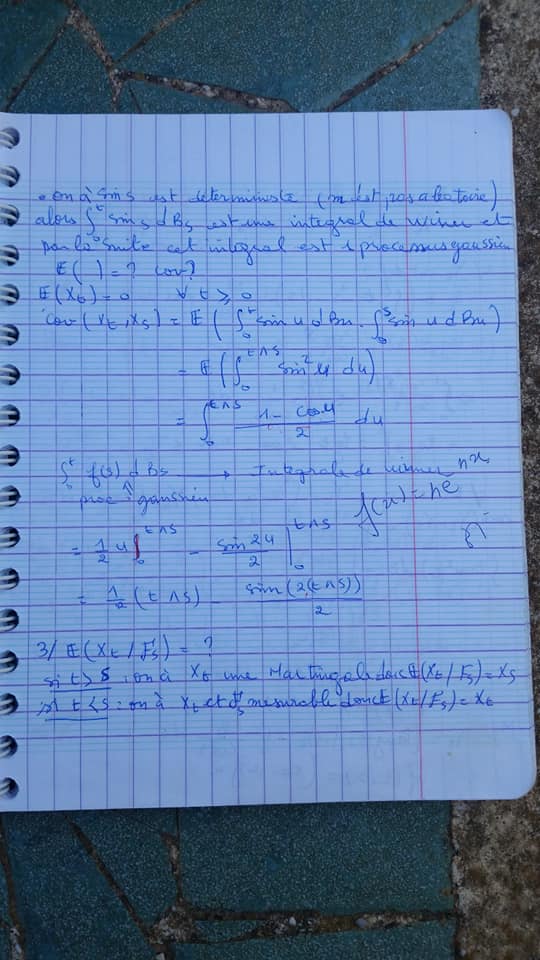 . on à sin s est deterministe (n'est pas aleatoire)
alors ∫₀ᵗ sin s dBs est une integral de winer et
par la suite cet integral est 1 processus gaussien
E( ) = ? cov?
E(Xt) = 0 ∀ t ≥ 0
cov(Xt, Xs) = E(∫₀ᵗ sin u dBu . ∫₀ˢ sin u dBu)
= E(∫₀^{t∧s} sin² u du)
= ∫₀^{t∧s} (1 - cos u)/2 du
∫₀ᵗ f(s) dBs → Integrale de winner
proc gaussien f(x) = ne^{nx}
= 1/2 u |₀^{t∧s} - sin 2u/2 |₀^{t∧s}
= 1/2 (t∧s) - sin(2(t∧s))/2
3/ E(Xt/Fs) = ?
si t > s : on à Xt une Martingale donc E(Xt/Fs) = Xs
si t < s : on à Xt et Fs mesurable donc E(Xt/Fs) = Xt